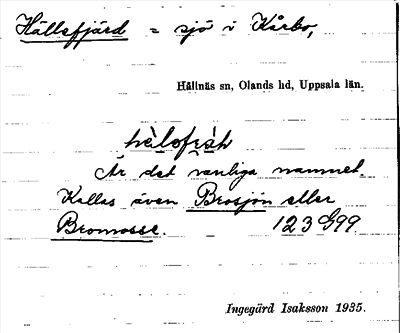 Hällsfjärd = sjö i Kårbo,
Hållnäs sn, Olands hd, Uppsala län.
Är det vanliga namnet.
Kallas även Brosjön eller
Bromosse. 123G99
Ingegärd Isaksson 1935.